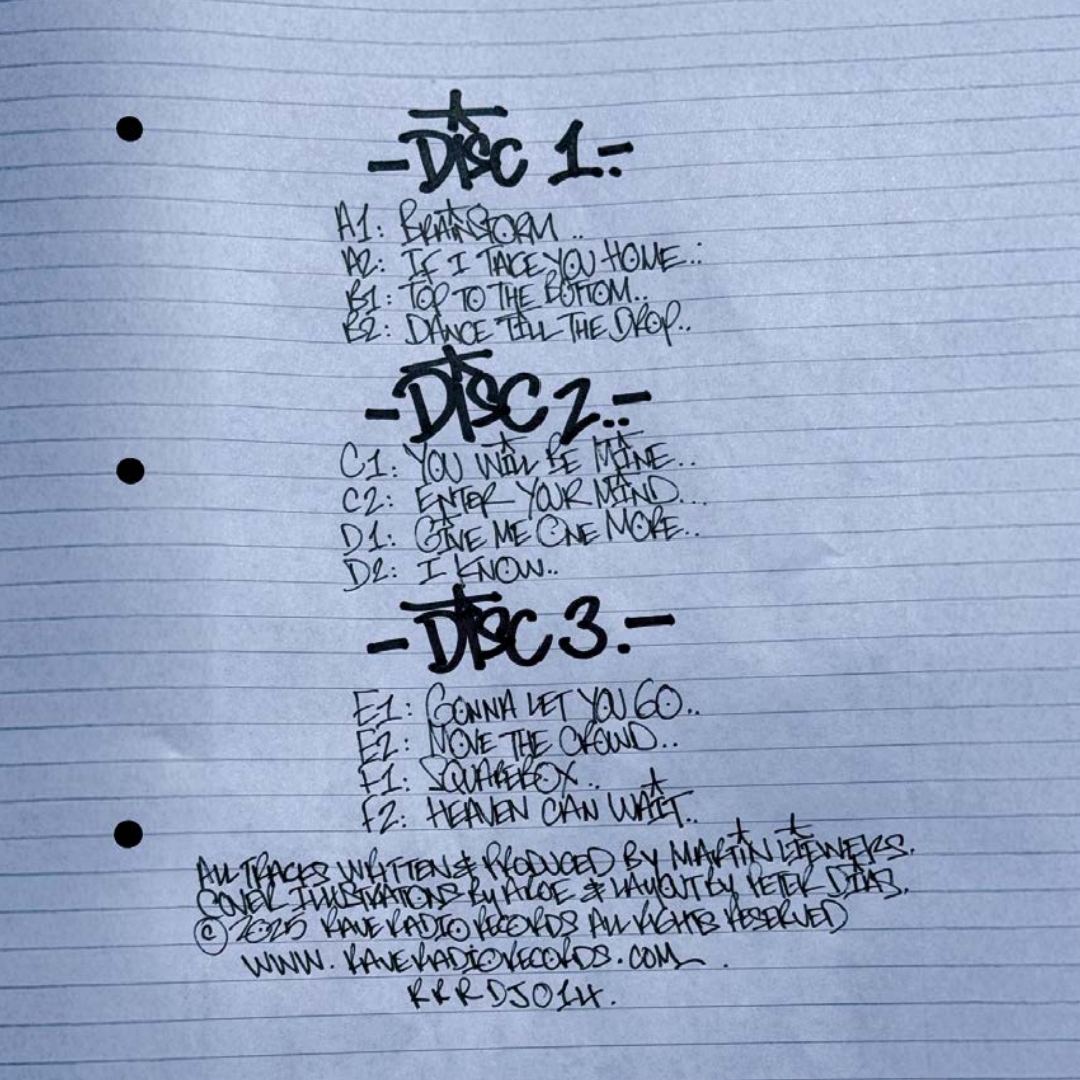 -DISC 1.-
A1: BRAINSTORM..
A2: IF I TAKE YOU HOME..
B1: TOP TO THE BOTTOM..
B2: DANCE TILL THE DROP..
-DISC 2.-
C1: YOU WILL BE MINE..
C2: ENTER YOUR MIND...
D1: GIVE ME ONE MORE..
D2: I KNOW..
-DISC 3.-
E1: GONNA LET YOU GO..
E2: MOVE THE CROWD..
F1: SQUAREBOX..
F2: HEAVEN CAN WAIT..
ALL TRACKS WRITTEN & PRODUCED BY MARTIN LIEWERS.
COVER ILLUSTRATIONS BY AROE & LAYOUT BY PETER DIAS.
© 2025 RAVE RADIO RECORDS ALL RIGHTS RESERVED
WWW.RAVERADIORECORDS.COM
RRRDJ014.